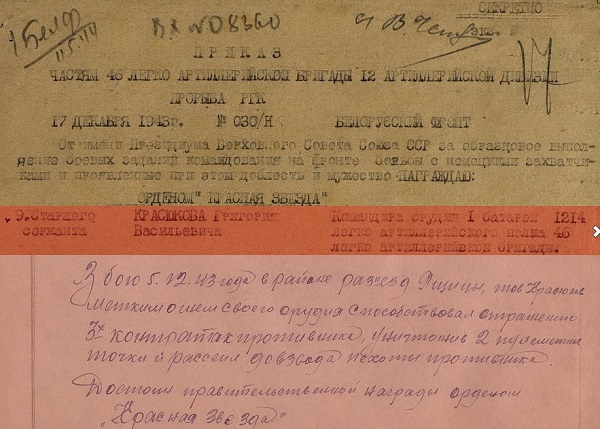 СЕКРЕТНО
экз.
Вх №08360
ПРИКАЗ
ЧАСТЯМ 46 ЛЕГКО АРТИЛЛЕРИЙСКОЙ БРИГАДЫ 12 АРТИЛЛЕРИЙСКОЙ ДИВИЗИИ
ПРОРЫВА РГК
17 ДЕКАБРЯ 1943г. № 030/Н БЕЛОРУССКИЙ ФРОНТ
От имени Президиума Верховного Совета Союза ССР за образцовое выпол-
нение боевых заданий командования на фронте борьбы с немецкими захватчи-
ками и проявленные при этом доблесть и мужество НАГРАЖДАЮ:
ОРДЕНОМ "КРАСНАЯ ЗВЕЗДА"
9. Старшего КРАСИКОВА Григория Командира орудия I батареи 1214
сержанта Васильевича легко артиллерийского полка 46
легко артиллерийской бригады.
В бою 5.12.43 года в районе разъезд Ящицы, тов Красиков
метким огнем своего орудия способствовал отражению
3х контратак противника, уничтожив 2 пулеметные
точки и рассеял до взвода пехоты противника.
Достоин правительственной награды орденом
"Красная звезда"